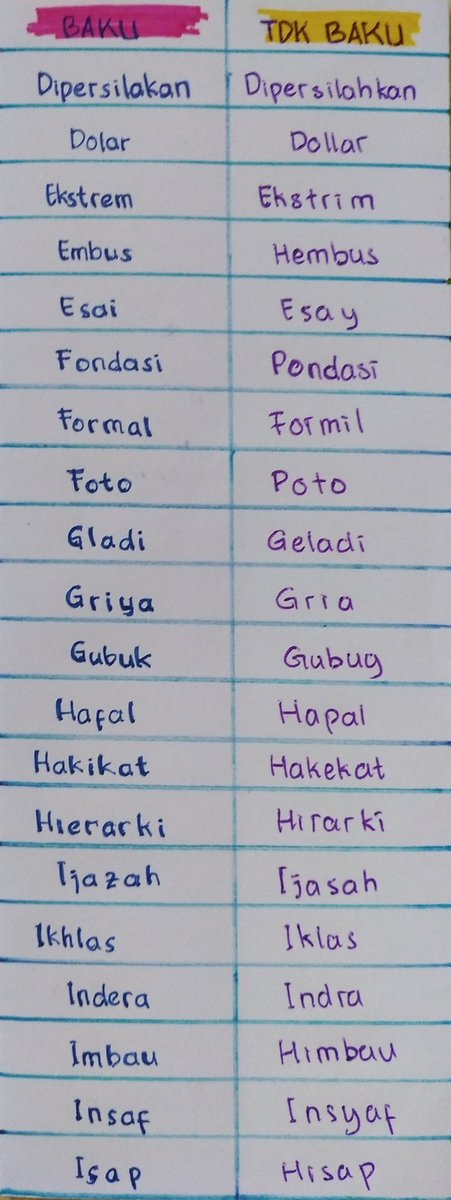 BAKU TDK BAKU
Dipersilakan Dipersilahkan
Dolar Dollar
Ekstrem Ekstrim
Embus Hembus
Esai Esay
Fondasi Pondasi
Formal Formil
Foto Poto
Gladi Geladi
Griya Gria
Gubuk Gubug
Hafal Hapal
Hakikat Hakekat
Hierarki Hirarki
Ijazah Ijasah
Ikhlas Iklas
Indera Indra
Imbau Himbau
Insaf Insyaf
Isap Hisap